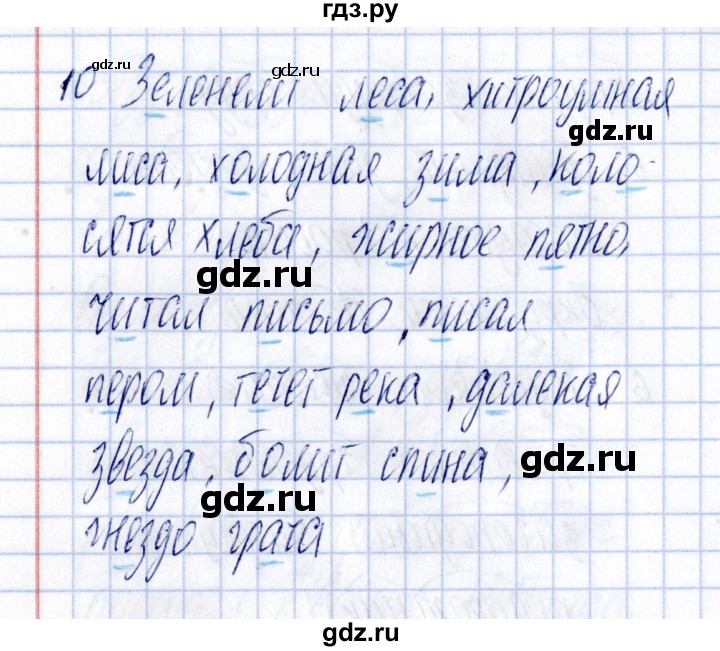 гдз.ру
gdz.ru gdz.ru
10 Зеленели леса, хитроумная
gdz.ru
лиса, холодная зима, коло-
сятся хлеба, жирное пятно,
gdz.ru
читал письмо, писал
пером, течет река, далекая
звезда, болит спина,
gdz.ru
gdz.ru
гнездо грача
gdz.ru